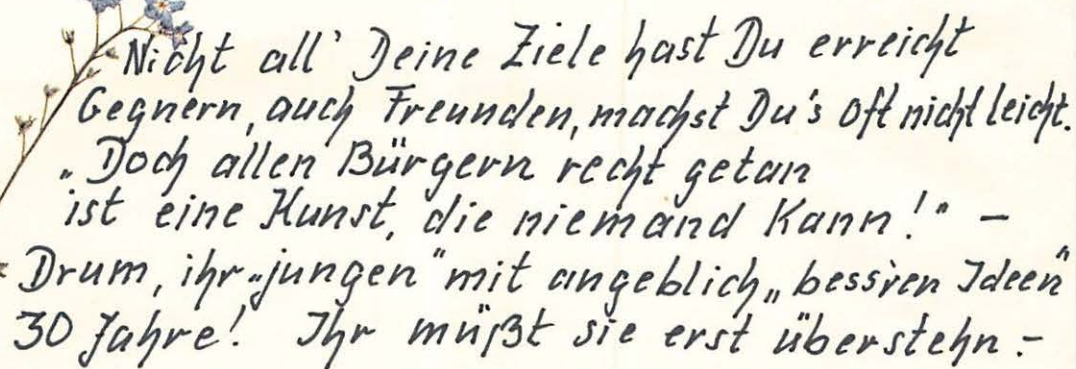 Nicht all' Deine Ziele hast Du erreicht
Gegnern, auch Freunden, machst Du's oft nicht leicht.
"Doch allen Bürgern recht getan
ist eine Kunst, die niemand kann!" –
Drum, ihr "jungen" mit angeblich "bess'ren Ideen"
30 Jahre! Ihr müßt sie erst überstehn. –